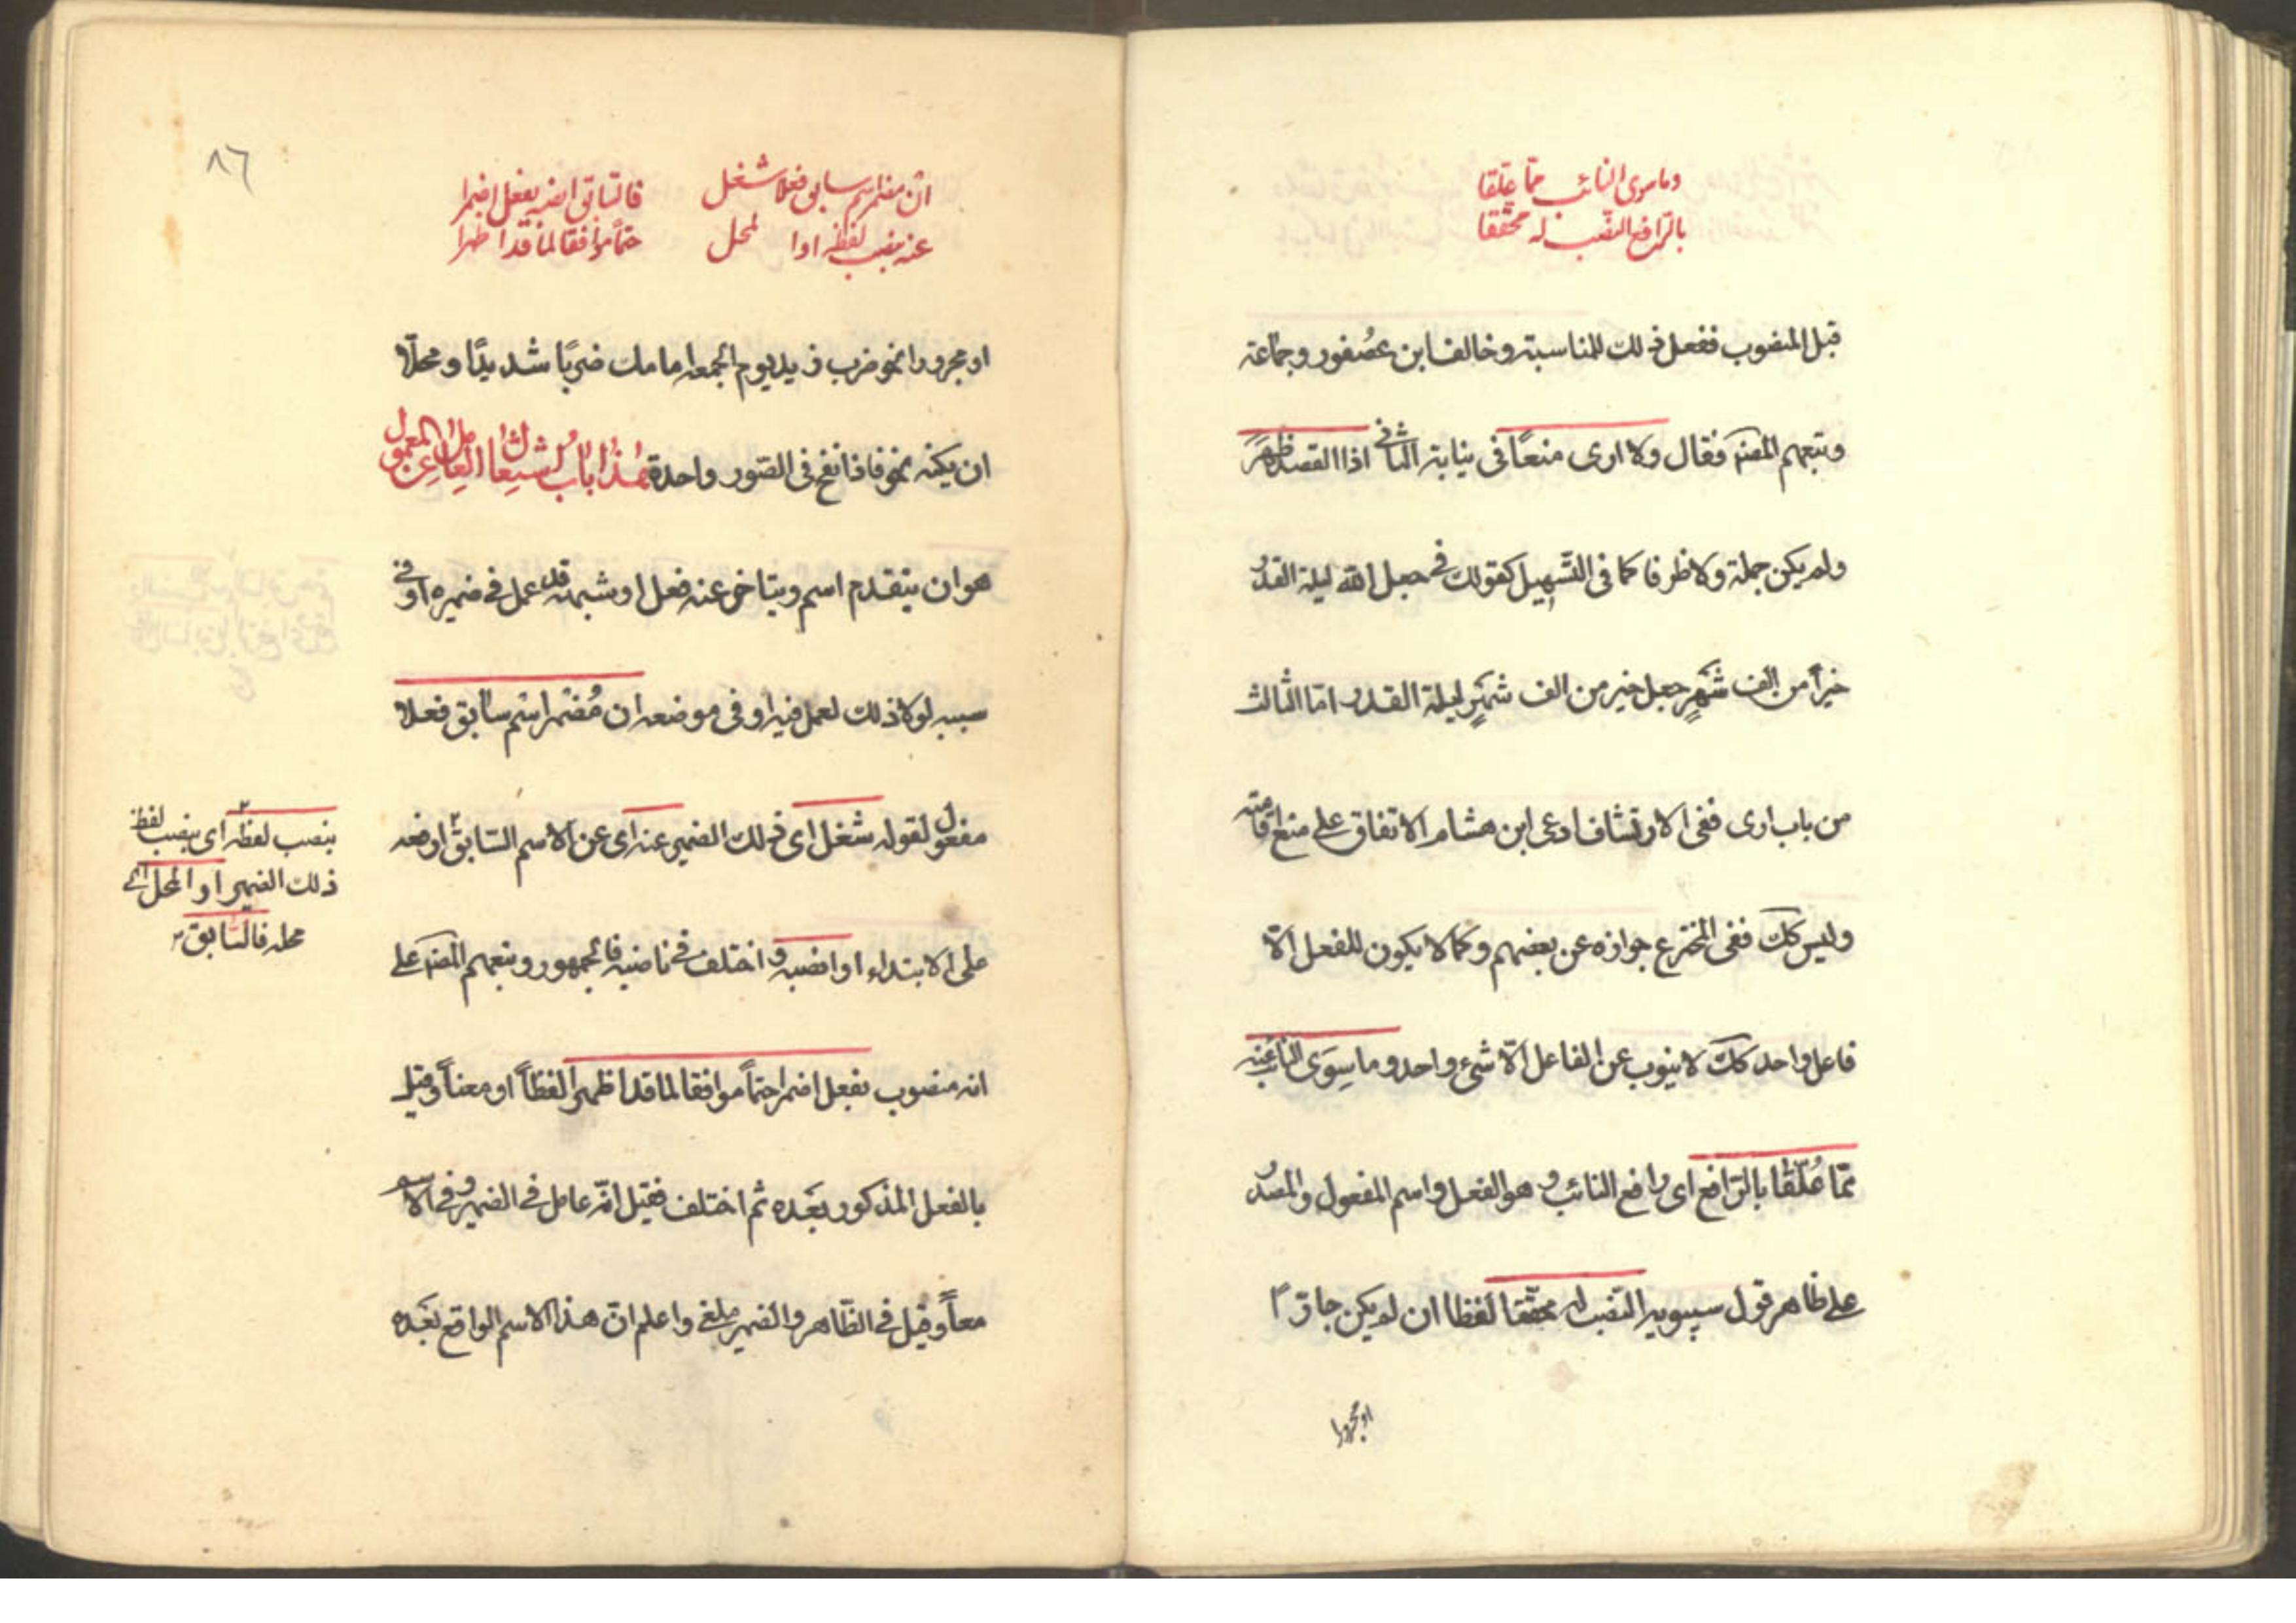 وما سوى النائب مما علقا
بالرافع النصب له محققا
قبل المنصوب ففعل ذلك للمناسبة وخالف ابن عُصفور وجماعة
وتبعهم المصنف فقال ولا ارى منعًا فى نيابة الثانى اذا القصد ظهَرَ
ولم يكن جملة ولا ظرفا كما فى التسهيل كقولك فى جعل الله ليلة القدر
خيراً من الف شهرٍ جعل خير من الف شهرٍ ليلة القدر امّا الثالث
من باب ارى ففى الارتشاف ادعى ابن هشام الاتفاق على منع اقامته
وليس كك ففى المخترع جوازه عن بعضهم وكما لا يكون للفعل الّا
فاعل واحد كك لا ينوب عن الفاعل الّا شىء واحد وما سِوَى النائب عنه
ممّا عُلّقا بالرّافع اى رافع النائب وهو الفعل واسم المفعول والمصدر
على ظاهر قول سيبويه النّصب له محقّقا لفظا ان لم يكن جارّا
او مجرورا
٨٦
ان مضمر اسم سابق فعلا شغل فالسابق انصبه بفعل اضمرا
عنه بنصب لفظه او المحل حتماً موافق لما قد اظهرا
او مجرورا نحو ضرب زيد يوم الجمعه امامك ضربًا شديدًا ومحلّا
ان يكنه نحو فاذا نفخ فى الصّور واحدة هذا باب اشتغال العامل عن المعمول
هو ان يتقدم اسم ويتاخر عنه فعل او شبهه قد عمل فى ضميره او فى
سببه لولا ذلك لعمل فيه او فى موضعه ان مُضمر اسم سابق فعلا
مفعول لقوله شغل اى ذلك الضمير عنه اى عن الاسم السّابق ارفعه
على الابتداء او انصبه واختلف فى ناصبه فالجمهور وتبعهم المصنف على
انه منصوب بفعل اضمر احتماً موافقا لما قد اظهرا لفظاً او معناً وقيل
بالفعل المذكور بعده ثم اختلف فقيل انّه عامل فى الضمير وفى الاسم
معاً وقيل فى الظّاهر والضمير ملغى واعلم انّ هذا الاسم الواقع بعده
بنصب لفظه اى بنصب لفظ
ذلك الضمير او المحل اى
محله فالسّابق